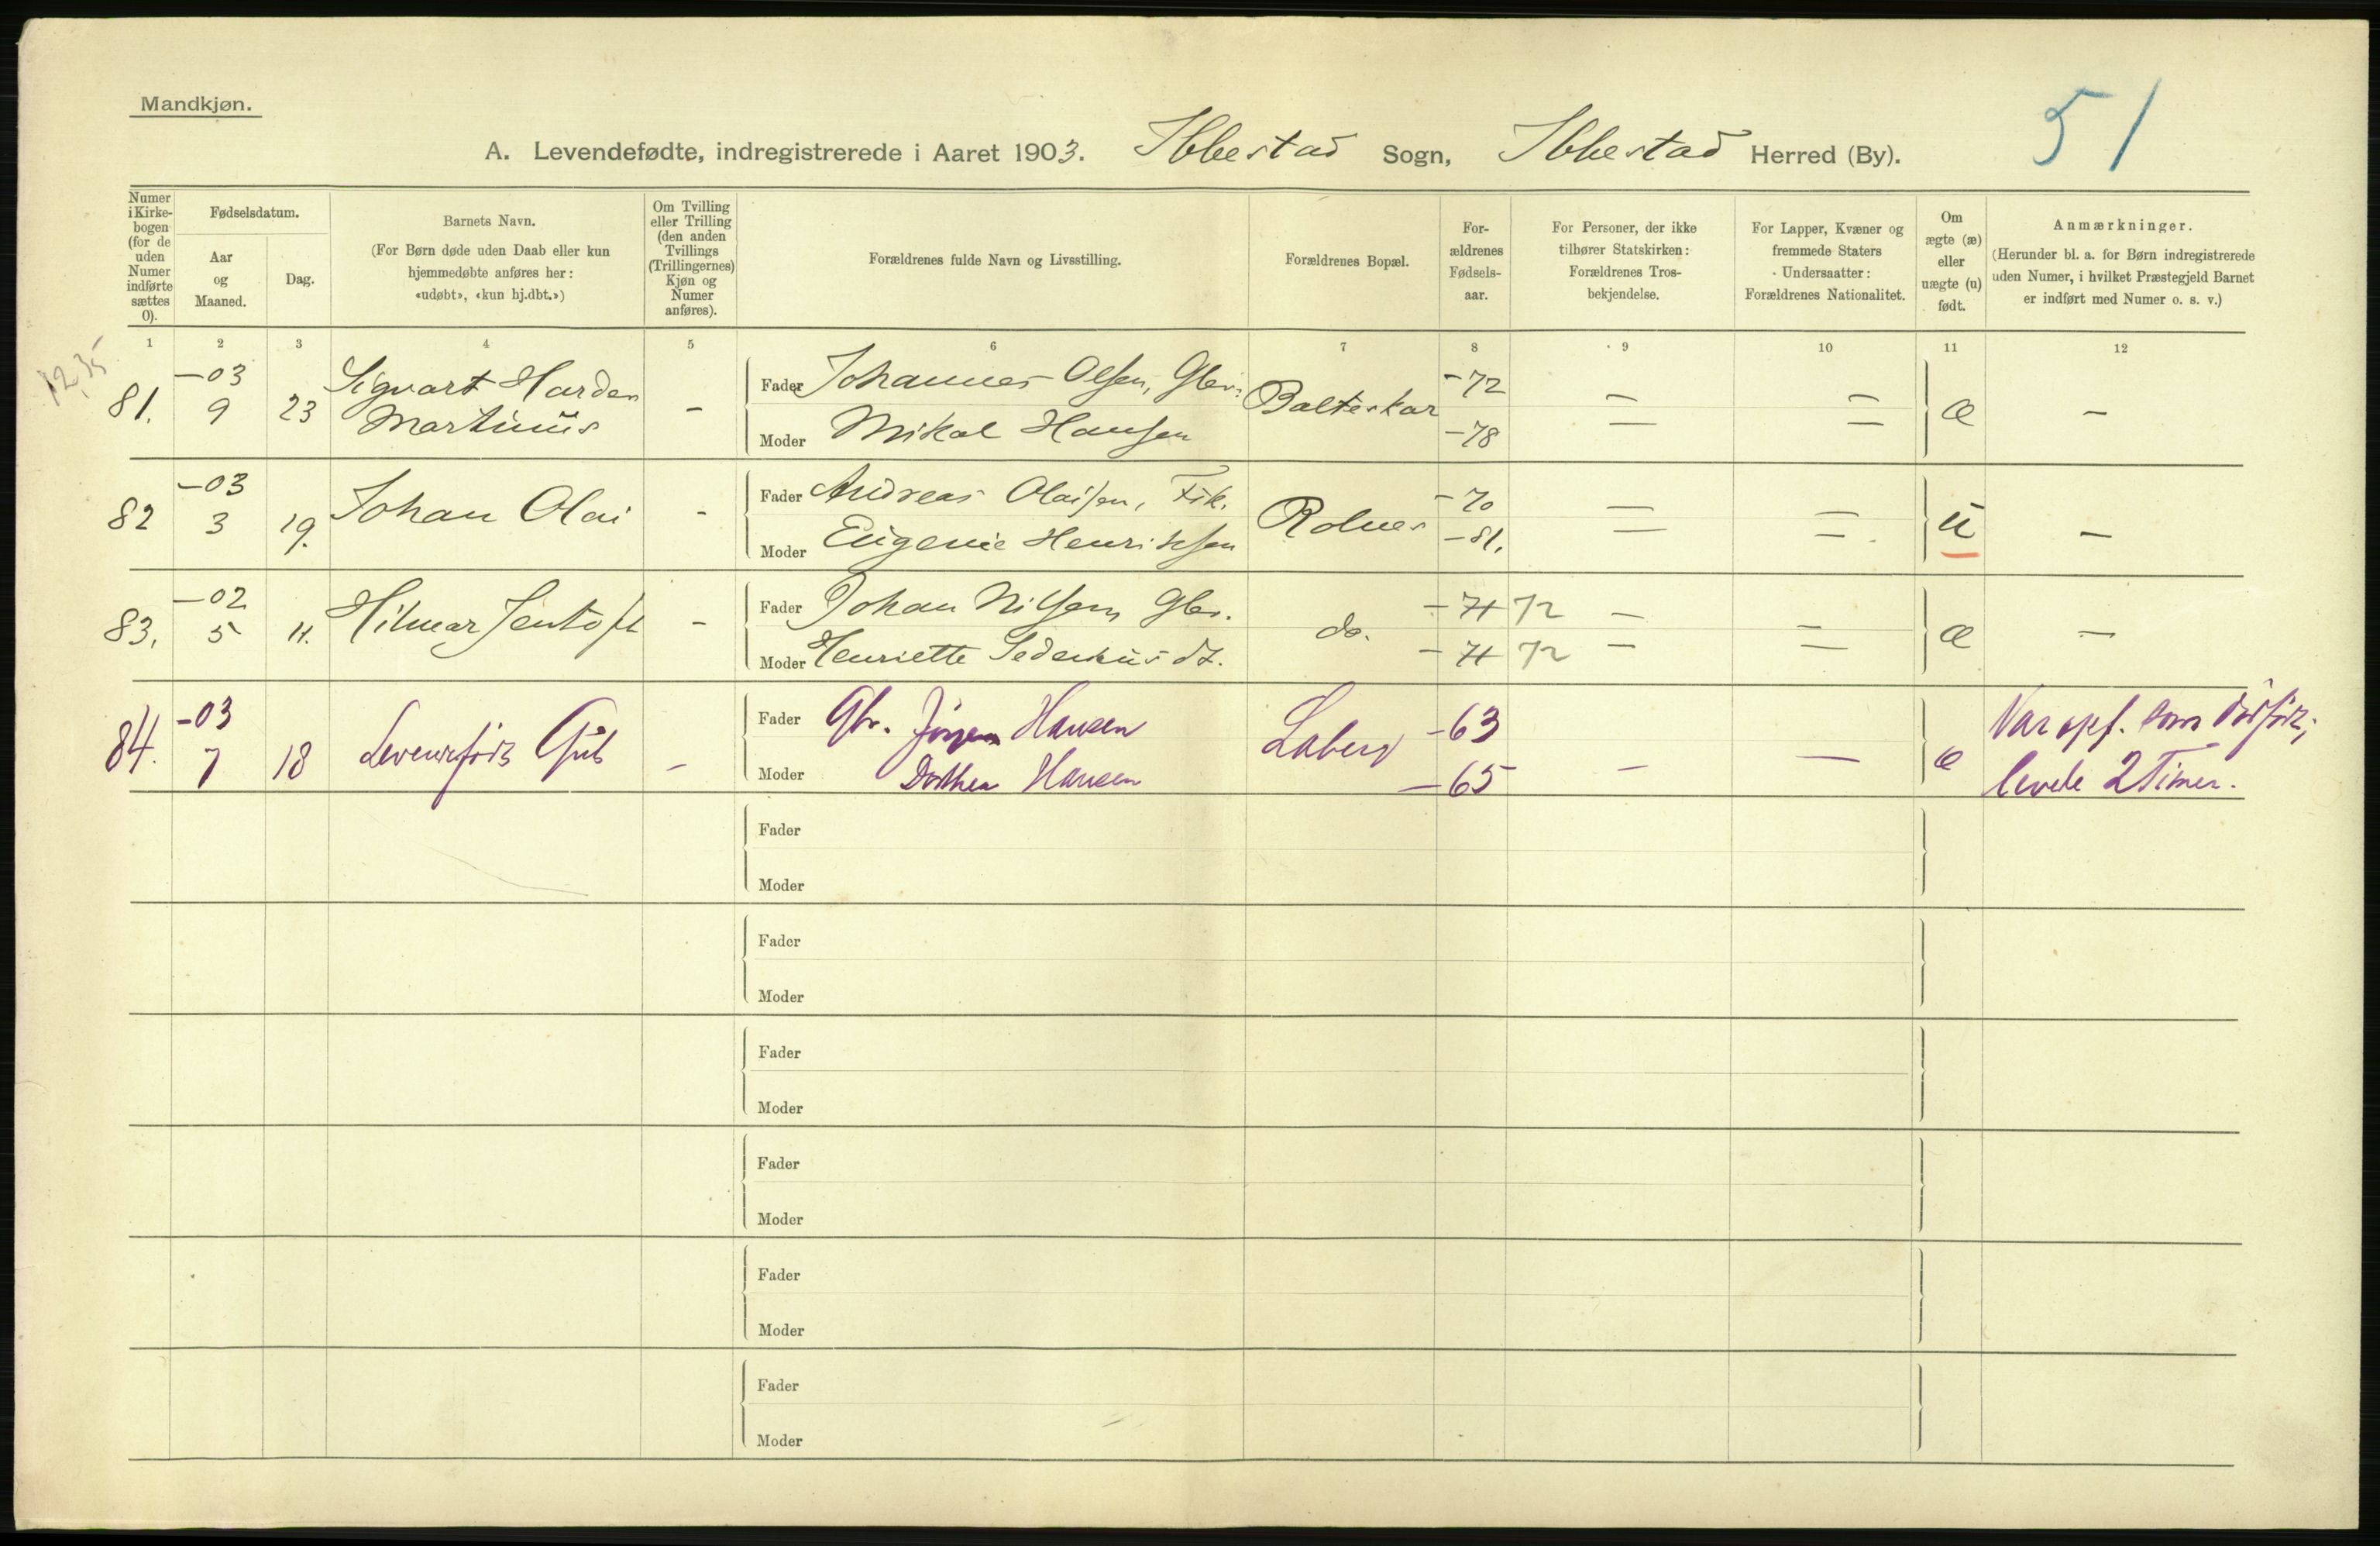 Mandkjøn.
51
A. Levendefødte, indregistrerede i Aaret 1903. Ibbestad Sogn, Ibbestad Herred (By).
Numer i Kirke-bogen (for de uden Numer indførte sættes 0).
Fødselsdatum.
Aar og Maaned.
Dag.
Barnets Navn.
(For Børn døde uden Daab eller kun hjemmedøbte anføres her: «udøbt», «kun hj.dbt.»)
Om Tvilling eller Trilling (den anden Tvillings (Trillingernes) Kjøn og Numer anføres).
Forældrenes fulde Navn og Livsstilling.
Forældrenes Bopæl.
For-ældrenes Fødsels-aar.
For Personer, der ikke tilhører Statskirken: Forældrenes Tros-bekjendelse.
For Lapper, Kvæner og fremmede Staters Undersaatter: Forældrenes Nationalitet.
Om ægte (æ) eller uægte (u) født.
Anmærkninger.
(Herunder bl. a. for Børn indregistrerede uden Numer, i hvilket Præstegjeld Barnet er indført med Numer o. s. v.)
1 2 3 4 5 6 7 8 9 10 11 12
1235
81. -03 9 23 Sigvart Harder Martinus - Fader Johannes Olsen, Gbr. Balteskar -72 — — æ -
Moder Mikal Hansen -78 — —
82 -03 3 19. Johan Olai - Fader Andreas Olaisen, Fisk. Rolnes -70 — — u -
Moder Eugenie Henriksen -81. — —
83. -02 5 11. Hilmar Jentoft - Fader Johan Nilsen Gbr. do. -71 72 — — æ -
Moder Henriette Pedersdt. -71 72 — —
84. -03 7 18 Levendefødt Gut - Fader Gbr. Jørgen Hansen Laberg -63 æ Var opf. som dødfødt;
Moder Dorthea Hansen -65 — — levede 2 Timer.
Fader
Moder
Fader
Moder
Fader
Moder
Fader
Moder
Fader
Moder
Fader
Moder